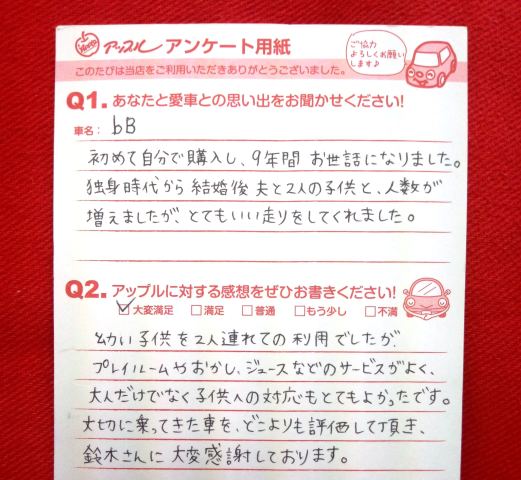 アップル アンケート用紙
ご協力
よろしくお願い
します♪
このたびは当店をご利用いただきありがとうございました。
Q1. あなたと愛車との思い出をお聞かせください!
車名: bB
初めて自分で購入し、9年間 お世話になりました。
独身時代から 結婚後 夫と2人の子供と、人数が
増えましたが、とてもいい走りをしてくれました。
Q2. アップルに対する感想をぜひお書きください!
☑大変満足 □満足 □普通 □もう少し □不満
幼い子供を2人連れての利用でしたが、
プレイルームやおかし、ジュースなどのサービスがよく、
大人だけでなく子供への対応もとてもよかったです。
大切に乗ってきた車を、どこよりも評価して頂き、
鈴木さんに大変感謝しております。